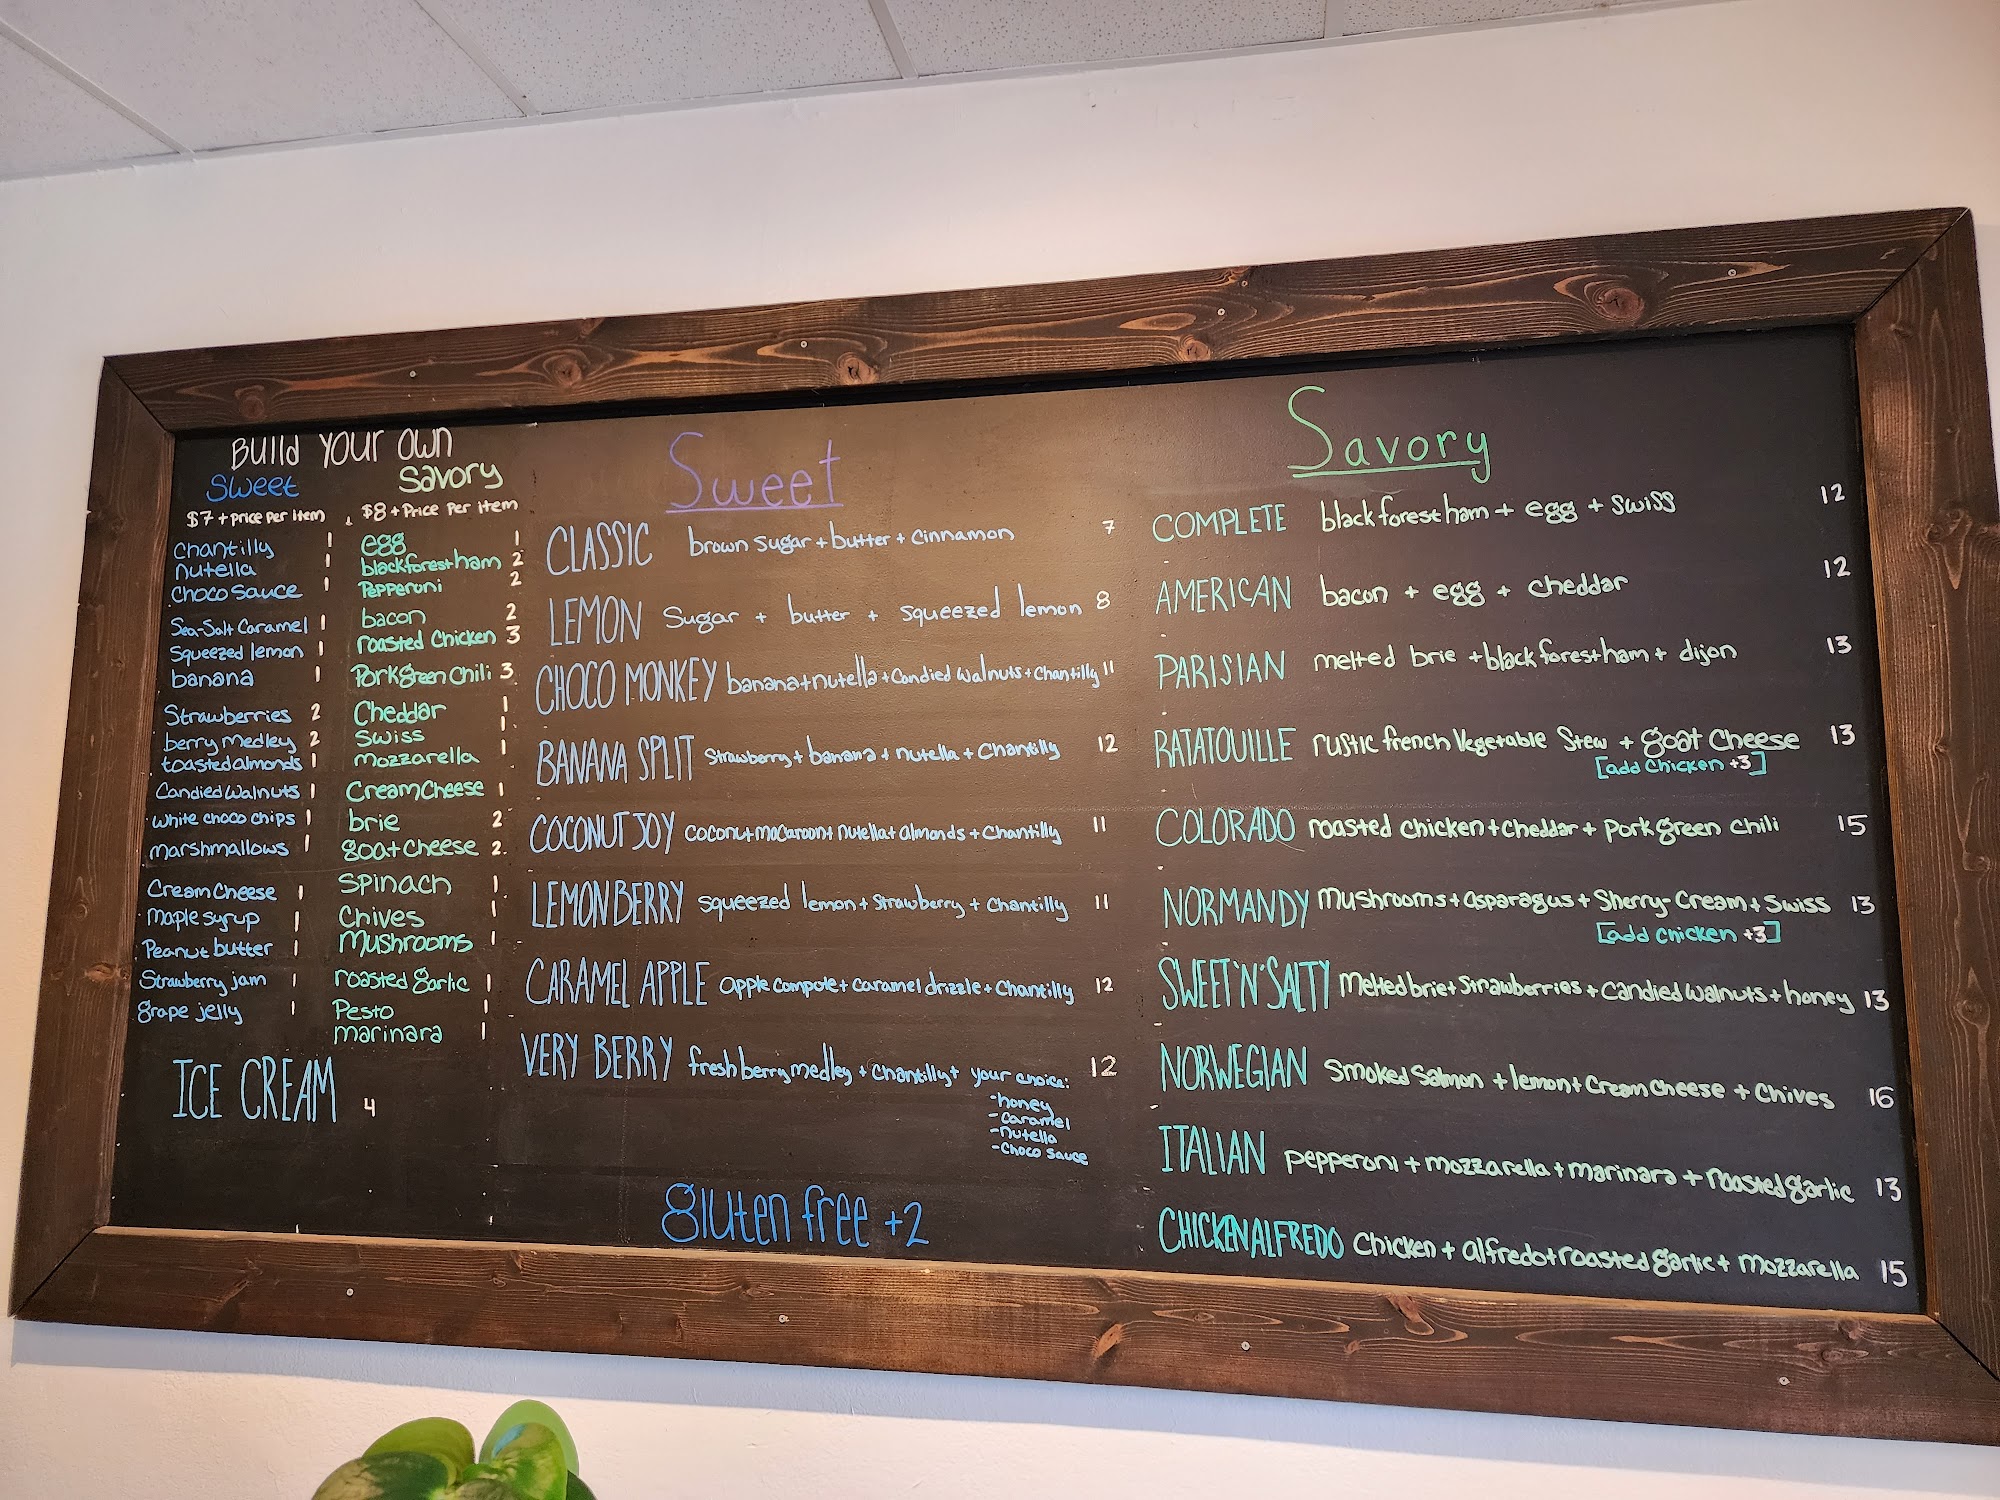 Build Your Own
Sweet
$7 + price per item
Chantilly 1
nutella 1
Choco Sauce 1
Sea-Salt Caramel 1
Squeezed lemon 1
banana 1
Strawberries 2
berry medley 2
toasted almonds 1
Candied Walnuts 1
White choco chips 1
marshmallows 1
Cream Cheese 1
maple syrup 1
Peanut butter 1
Strawberry jam 1
grape jelly 1
ICE CREAM 4
Savory
$8 + Price Per item
egg 1
black forest ham 2
Pepperoni 2
bacon 2
roasted Chicken 3
Pork green Chili 3
Cheddar 1
Swiss 1
mozzarella 1
Cream Cheese 1
brie 2
goat cheese 2
Spinach 1
Chives 1
Mushrooms 1
roasted garlic 1
Pesto 1
marinara 1
Sweet
CLASSIC brown sugar + butter + Cinnamon 7
LEMON Sugar + butter + squeezed lemon 8
CHOCO MONKEY banana + nutella + Candied Walnuts + Chantilly 11
BANANA SPLIT Strawberry + banana + nutella + Chantilly 12
COCONUT JOY coconut macaroon + nutella + almonds + Chantilly 11
LEMONBERRY squeezed lemon + strawberry + Chantilly 11
CARAMEL APPLE apple compote + caramel drizzle + Chantilly 12
VERY BERRY fresh berry medley + Chantilly + your choice: 12
-honey
-caramel
-nutella
-Choco sauce
gluten free +2
Savory
COMPLETE black forest ham + egg + swiss 12
AMERICAN bacon + egg + cheddar 12
PARISIAN melted brie + black forest ham + dijon 13
RATATOUILLE rustic french Vegetable Stew + goat Cheese 13
[add Chicken +3]
COLORADO roasted chicken + cheddar + Pork green chili 15
NORMANDY Mushrooms + asparagus + Sherry-Cream + Swiss 13
[add chicken +3]
SWEET 'N' SALTY Melted brie + Strawberries + Candied Walnuts + honey 13
NORWEGIAN Smoked Salmon + lemon + Cream Cheese + Chives 16
ITALIAN pepperoni + mozzarella + marinara + roasted garlic 13
CHICKEN ALFREDO Chicken + alfredo + roasted garlic + mozzarella 15